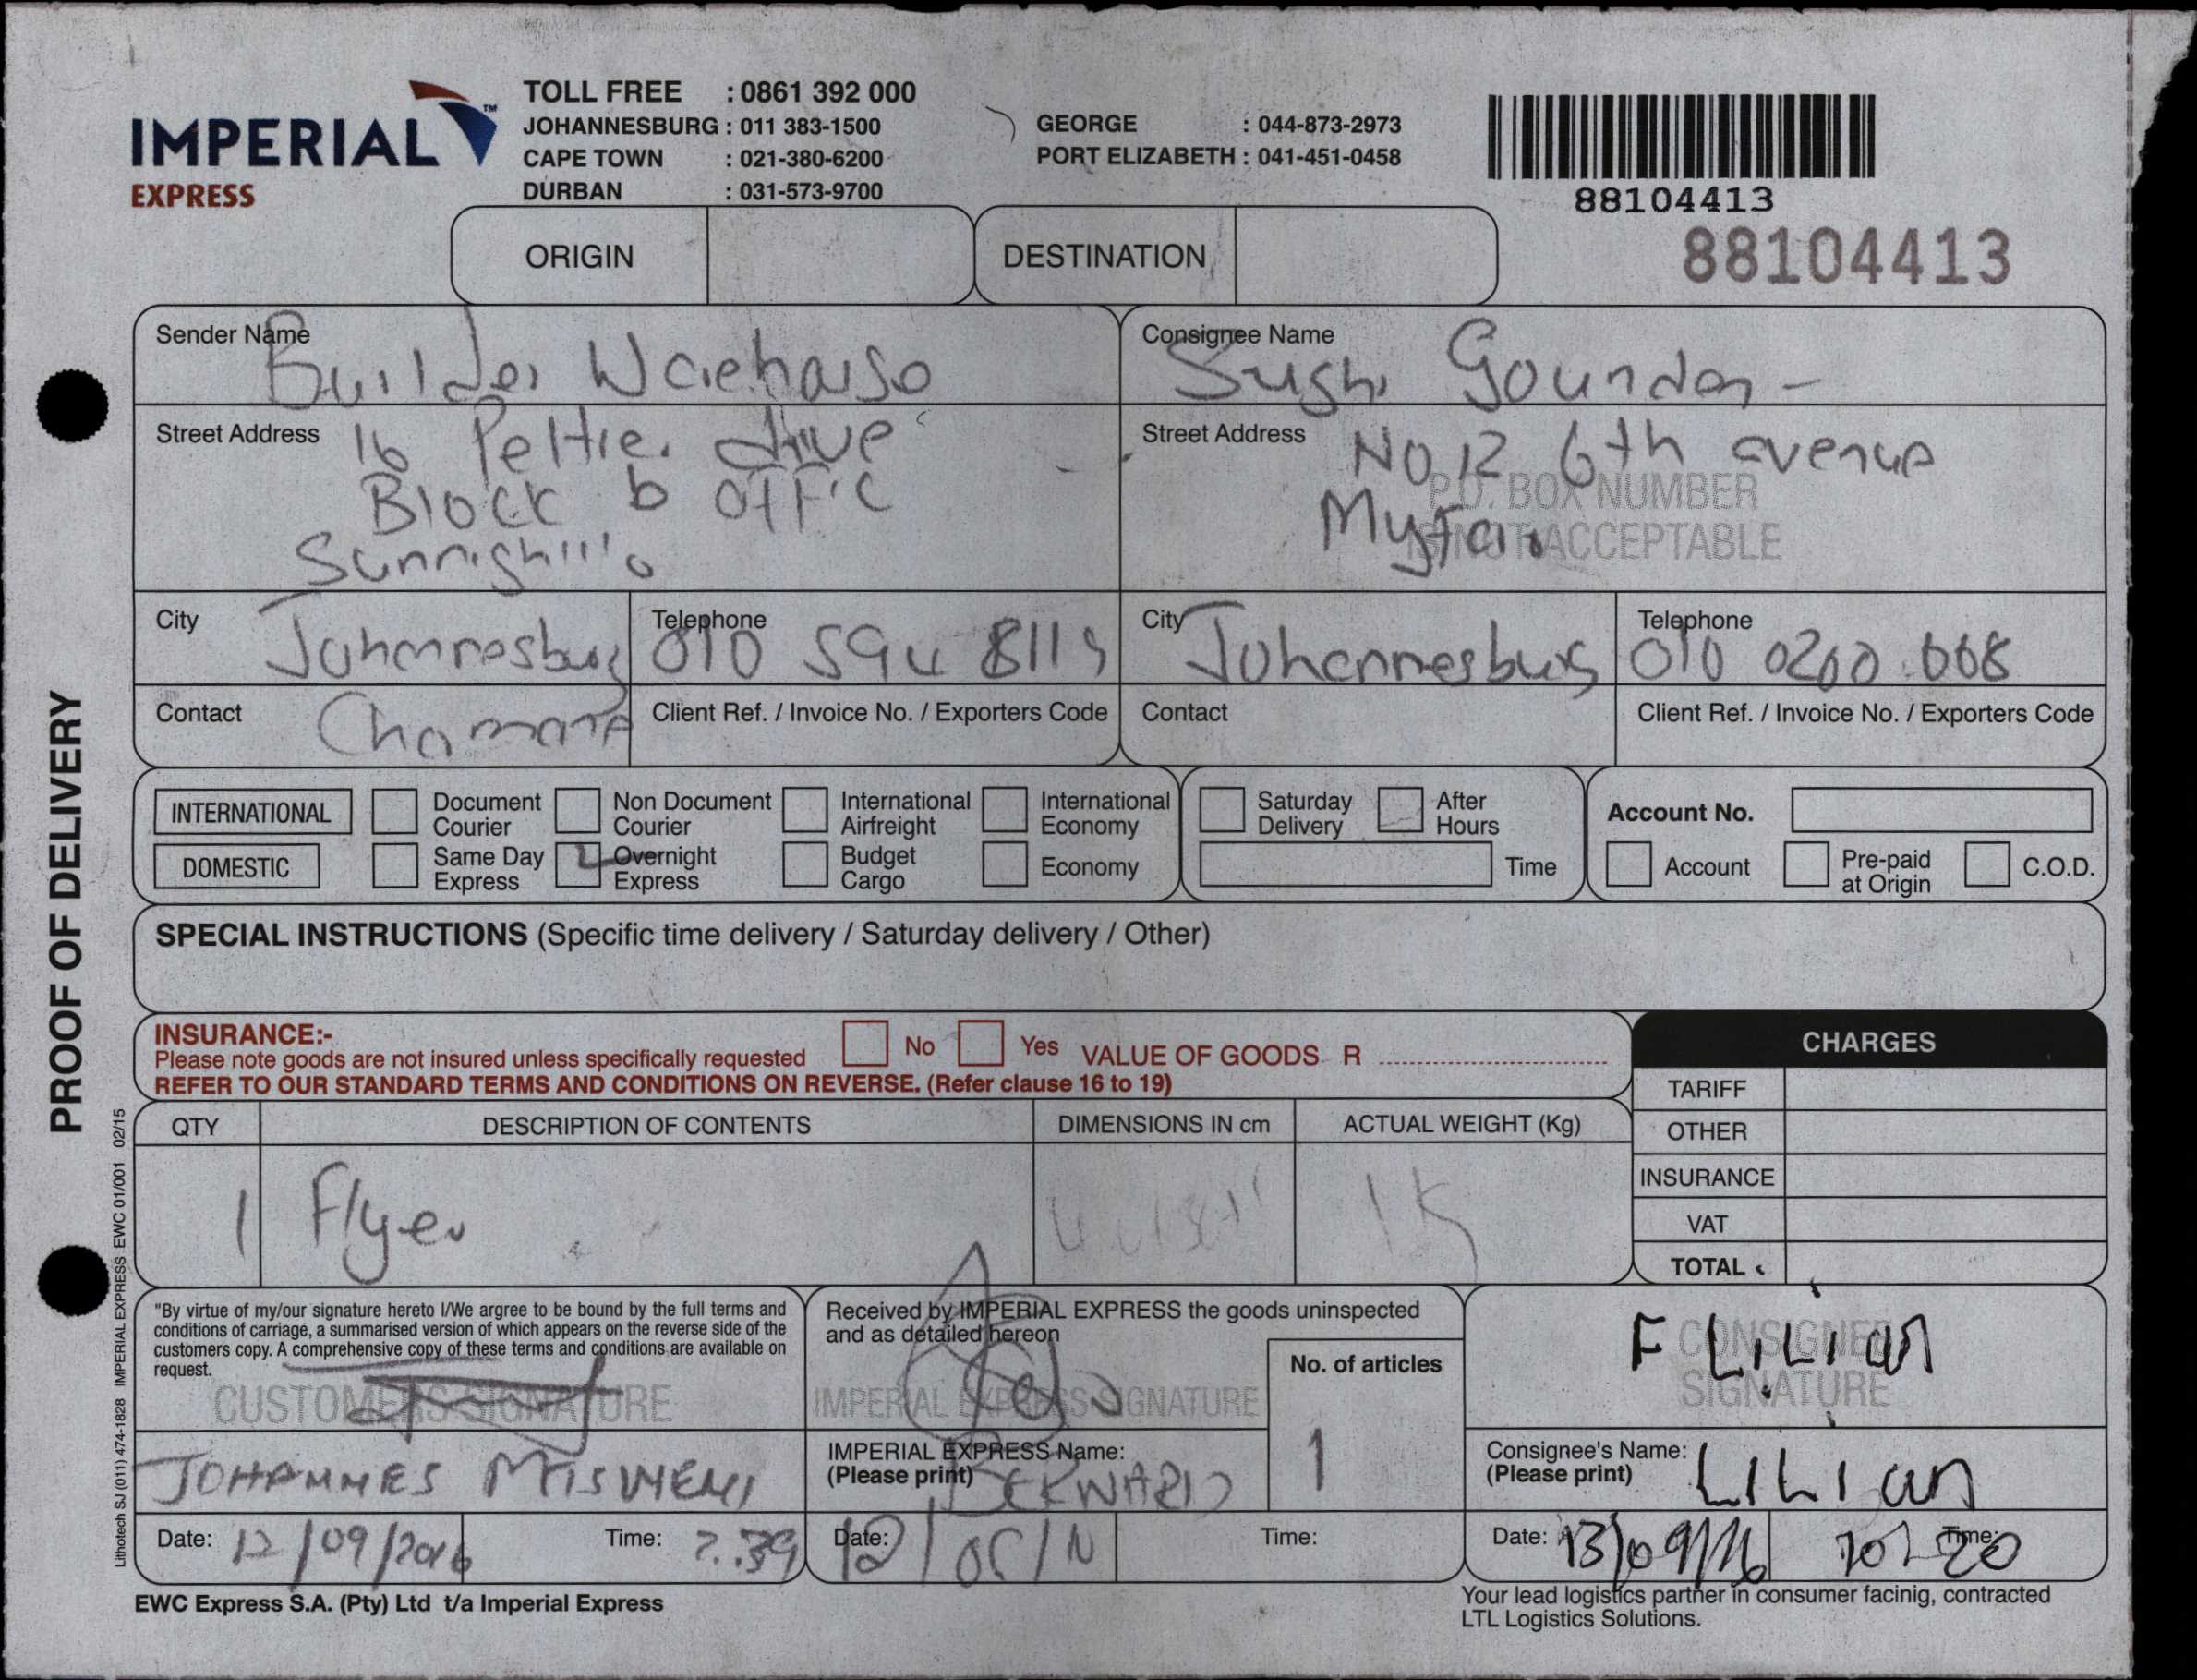 IMPERIAL™
EXPRESS
TOLL FREE : 0861 392 000
JOHANNESBURG : 011 383-1500
CAPE TOWN : 021-380-6200
DURBAN : 031-573-9700
GEORGE : 044-873-2973
PORT ELIZABETH : 041-451-0458
88104413
88104413
ORIGIN
DESTINATION
Sender Name
Consignee Name
Street Address 16
Block b
Street Address No 12 6th avenue
P.O. BOX NUMBER
IS NOT ACCEPTABLE
City
Telephone
City Johannesburg
Telephone
Contact
Client Ref. / Invoice No. / Exporters Code
Contact
Client Ref. / Invoice No. / Exporters Code
INTERNATIONAL
Document Courier
Non Document Courier
International Airfreight
International Economy
DOMESTIC
Same Day Express
Overnight Express
Budget Cargo
Economy
Saturday Delivery
After Hours
Time
Account No.
Account
Pre-paid at Origin
C.O.D.
SPECIAL INSTRUCTIONS (Specific time delivery / Saturday delivery / Other)
INSURANCE:-
Please note goods are not insured unless specifically requested
No
Yes
VALUE OF GOODS R
REFER TO OUR STANDARD TERMS AND CONDITIONS ON REVERSE. (Refer clause 16 to 19)
CHARGES
TARIFF
OTHER
INSURANCE
VAT
TOTAL
QTY
DESCRIPTION OF CONTENTS
DIMENSIONS IN cm
ACTUAL WEIGHT (Kg)
1
Flyer
"By virtue of my/our signature hereto I/We argree to be bound by the full terms and
conditions of carriage, a summarised version of which appears on the reverse side of the
customers copy. A comprehensive copy of these terms and conditions are available on
request.
CUSTOMERS SIGNATURE
JOHANNES
Date: 12/09/2016
Time:
Received by IMPERIAL EXPRESS the goods uninspected
and as detailed hereon
IMPERIAL EXPRESS SIGNATURE
No. of articles
1
IMPERIAL EXPRESS Name:
(Please print)
Date:
Time:
CONSIGNEE
SIGNATURE
F LILIAN
Consignee's Name:
(Please print) LILIAN
Date: 13/09/16
Time:
EWC Express S.A. (Pty) Ltd t/a Imperial Express
Your lead logistics partner in consumer facinig, contracted
LTL Logistics Solutions.
PROOF OF DELIVERY
Lithotech SJ (011) 474-1828 IMPERIAL EXPRESS EWC 01/001 02/15